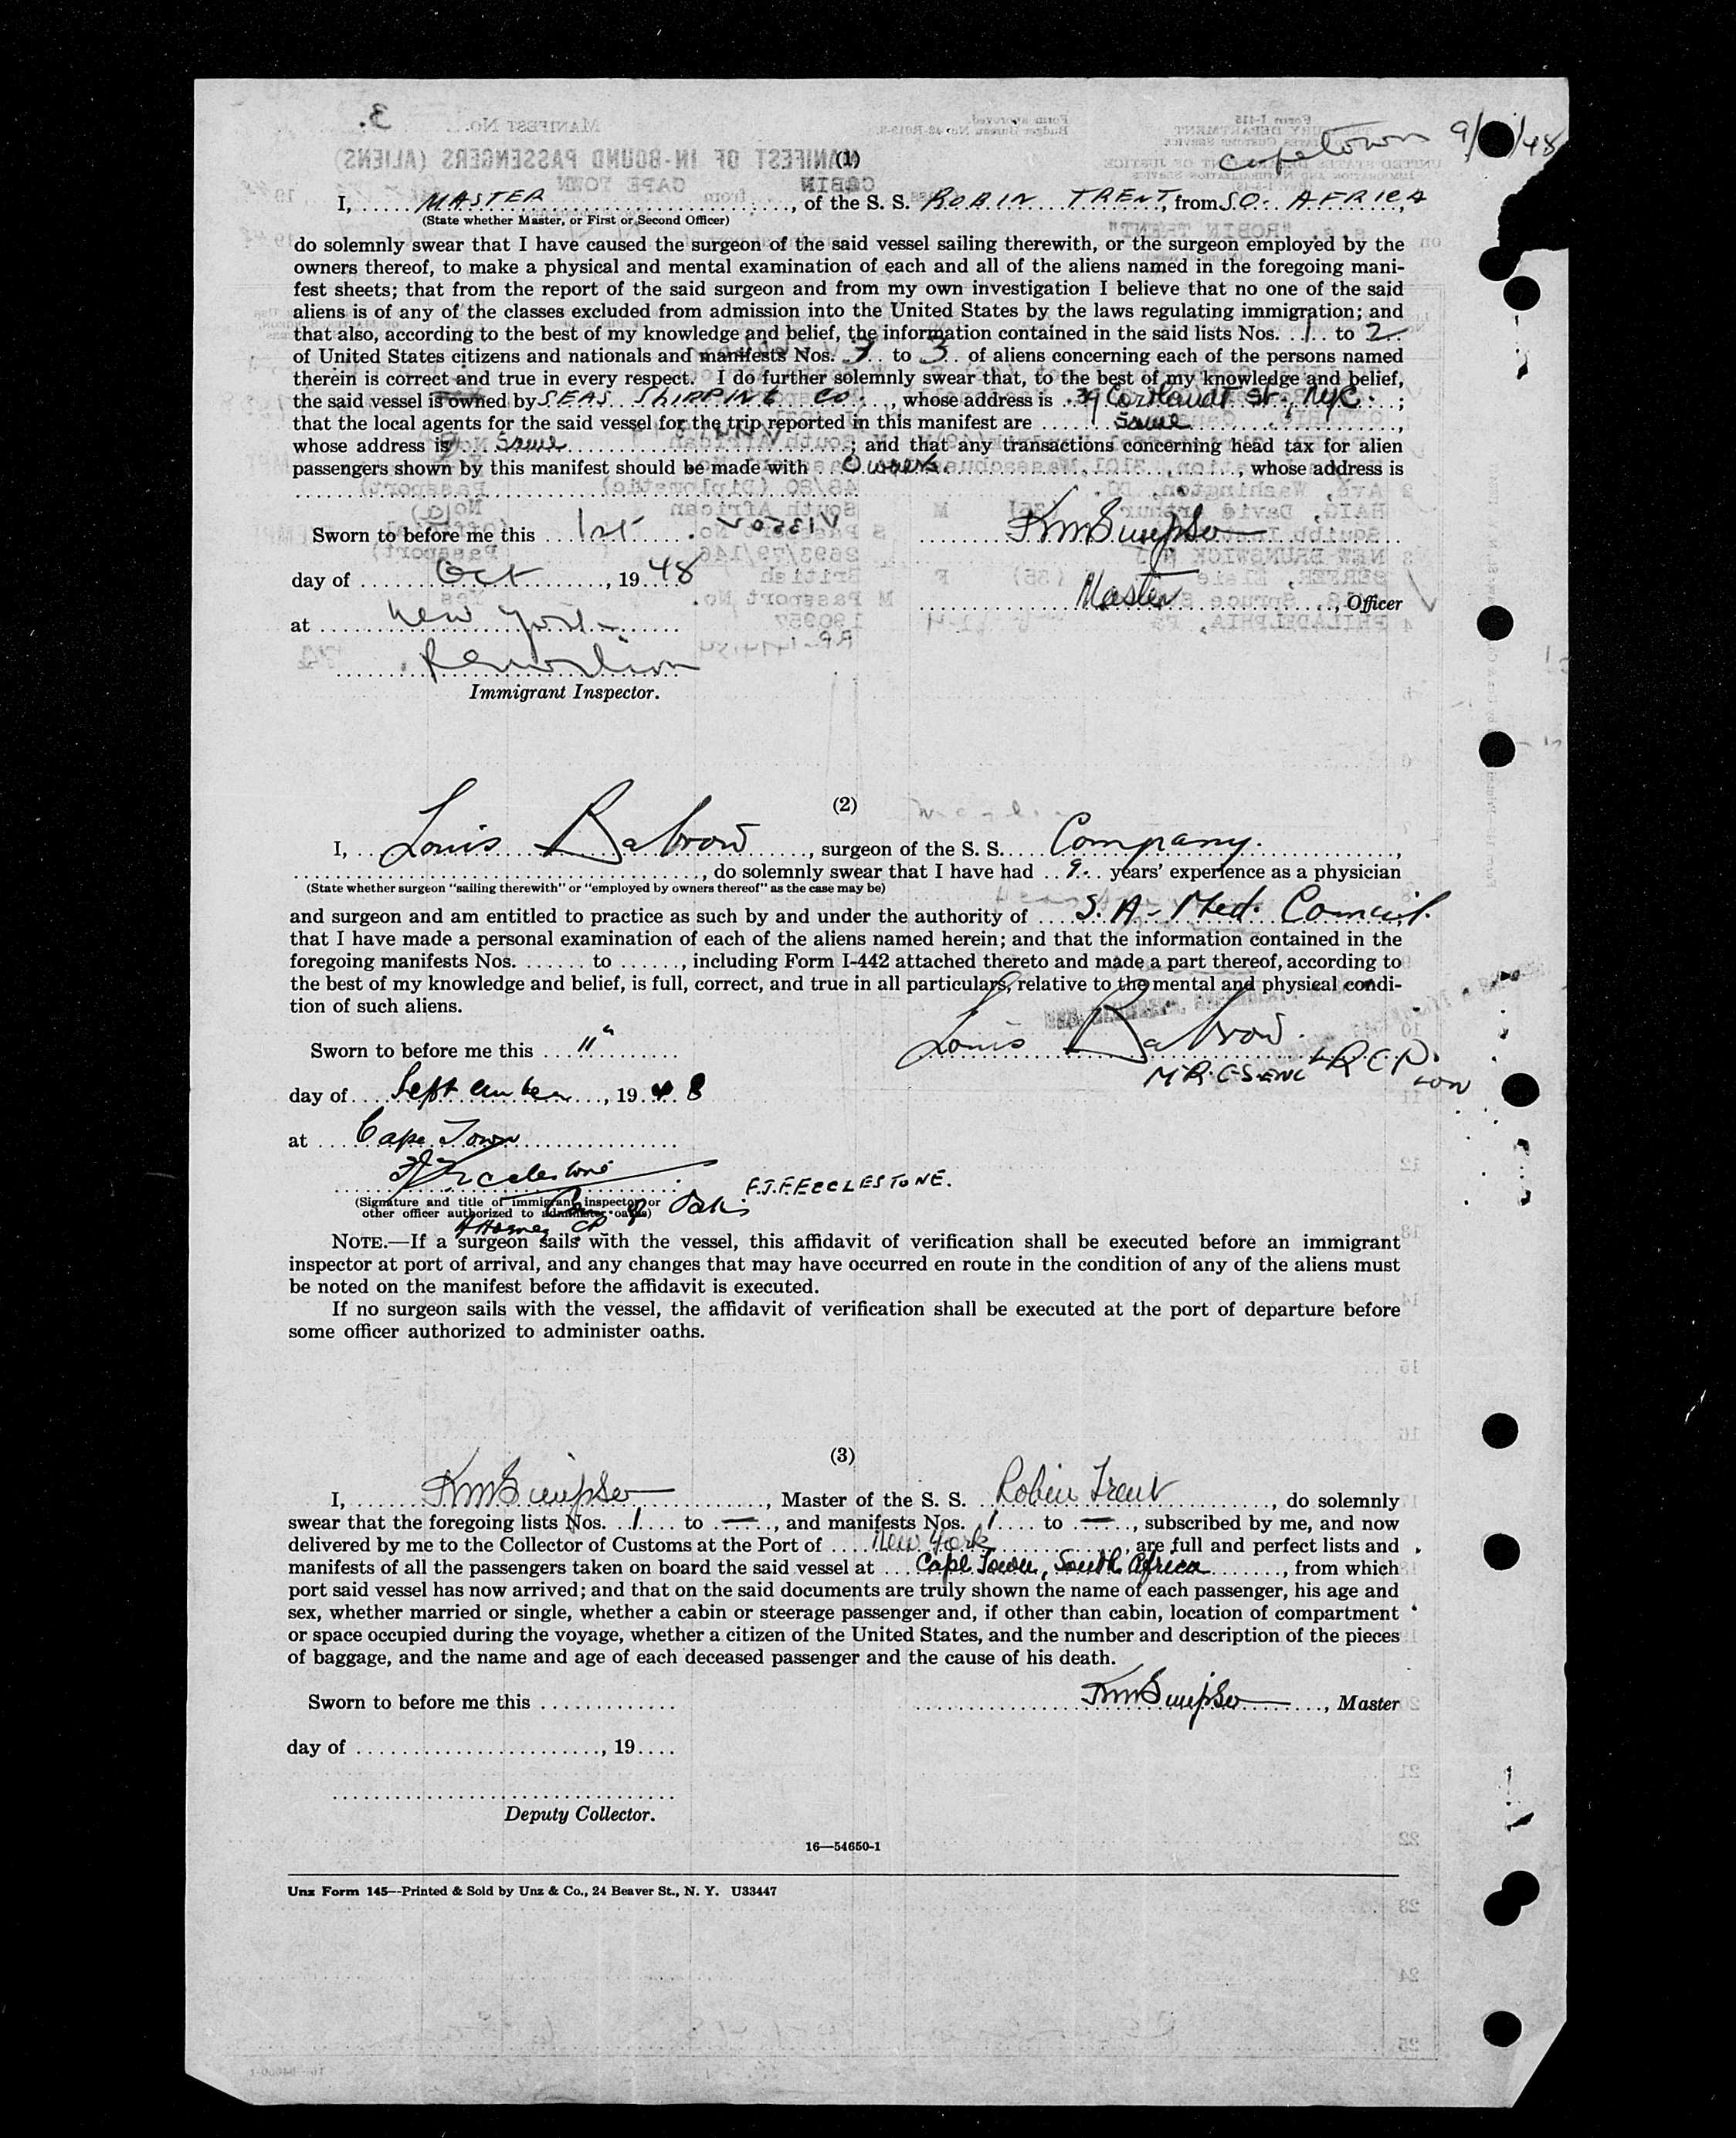 Capetown 9/ /48
(1)
I, MASTER, of the S. S. ROBIN TRENT, from SO. AFRICA,
(State whether Master, or First or Second Officer)
do solemnly swear that I have caused the surgeon of the said vessel sailing therewith, or the surgeon employed by the
owners thereof, to make a physical and mental examination of each and all of the aliens named in the foregoing mani-
fest sheets; that from the report of the said surgeon and from my own investigation I believe that no one of the said
aliens is of any of the classes excluded from admission into the United States by the laws regulating immigration; and
that also, according to the best of my knowledge and belief, the information contained in the said lists Nos. 1 to 2
of United States citizens and nationals and manifests Nos. 3 to 3 of aliens concerning each of the persons named
therein is correct and true in every respect. I do further solemnly swear that, to the best of my knowledge and belief,
the said vessel is owned by SEAS SHIPPING CO., whose address is 39 Cortlandt St., NYC.;
that the local agents for the said vessel for the trip reported in this manifest are Same,
whose address is Same; and that any transactions concerning head tax for alien
passengers shown by this manifest should be made with Owners, whose address is
Sworn to before me this 1st
KM Simpson
day of Oct, 1948
Master, Officer
at New York
Immigrant Inspector.
(2)
I, Louis Babrow, surgeon of the S. S. Company.,
, do solemnly swear that I have had 9 years' experience as a physician
(State whether surgeon "sailing therewith" or "employed by owners thereof" as the case may be)
and surgeon and am entitled to practice as such by and under the authority of S. A. Med. Council.
that I have made a personal examination of each of the aliens named herein; and that the information contained in the
foregoing manifests Nos. ...... to ......, including Form I-442 attached thereto and made a part thereof, according to
the best of my knowledge and belief, is full, correct, and true in all particulars, relative to the mental and physical condi-
tion of such aliens.
Louis Babrow
Sworn to before me this 11"
M.R.C.S. ENG L.R.C.P. LON
day of September, 1948
at Cape Town
F.J.F. ECCLESTONE.
(Signature and title of immigrant inspector or
other officer authorized to administer oaths)
Oaths
Attorney
NOTE.—If a surgeon sails with the vessel, this affidavit of verification shall be executed before an immigrant
inspector at port of arrival, and any changes that may have occurred en route in the condition of any of the aliens must
be noted on the manifest before the affidavit is executed.
If no surgeon sails with the vessel, the affidavit of verification shall be executed at the port of departure before
some officer authorized to administer oaths.
(3)
I, KM Simpson, Master of the S. S. Robin Trent, do solemnly
swear that the foregoing lists Nos. 1 to —, and manifests Nos. 1 to —, subscribed by me, and now
delivered by me to the Collector of Customs at the Port of New York, are full and perfect lists and
manifests of all the passengers taken on board the said vessel at Cape Town, South Africa, from which
port said vessel has now arrived; and that on the said documents are truly shown the name of each passenger, his age and
sex, whether married or single, whether a cabin or steerage passenger and, if other than cabin, location of compartment
or space occupied during the voyage, whether a citizen of the United States, and the number and description of the pieces
of baggage, and the name and age of each deceased passenger and the cause of his death.
Sworn to before me this
KM Simpson, Master
day of ......, 19....
Deputy Collector.
16—54650-1
Unz Form 145—Printed & Sold by Unz & Co., 24 Beaver St., N. Y. U33447